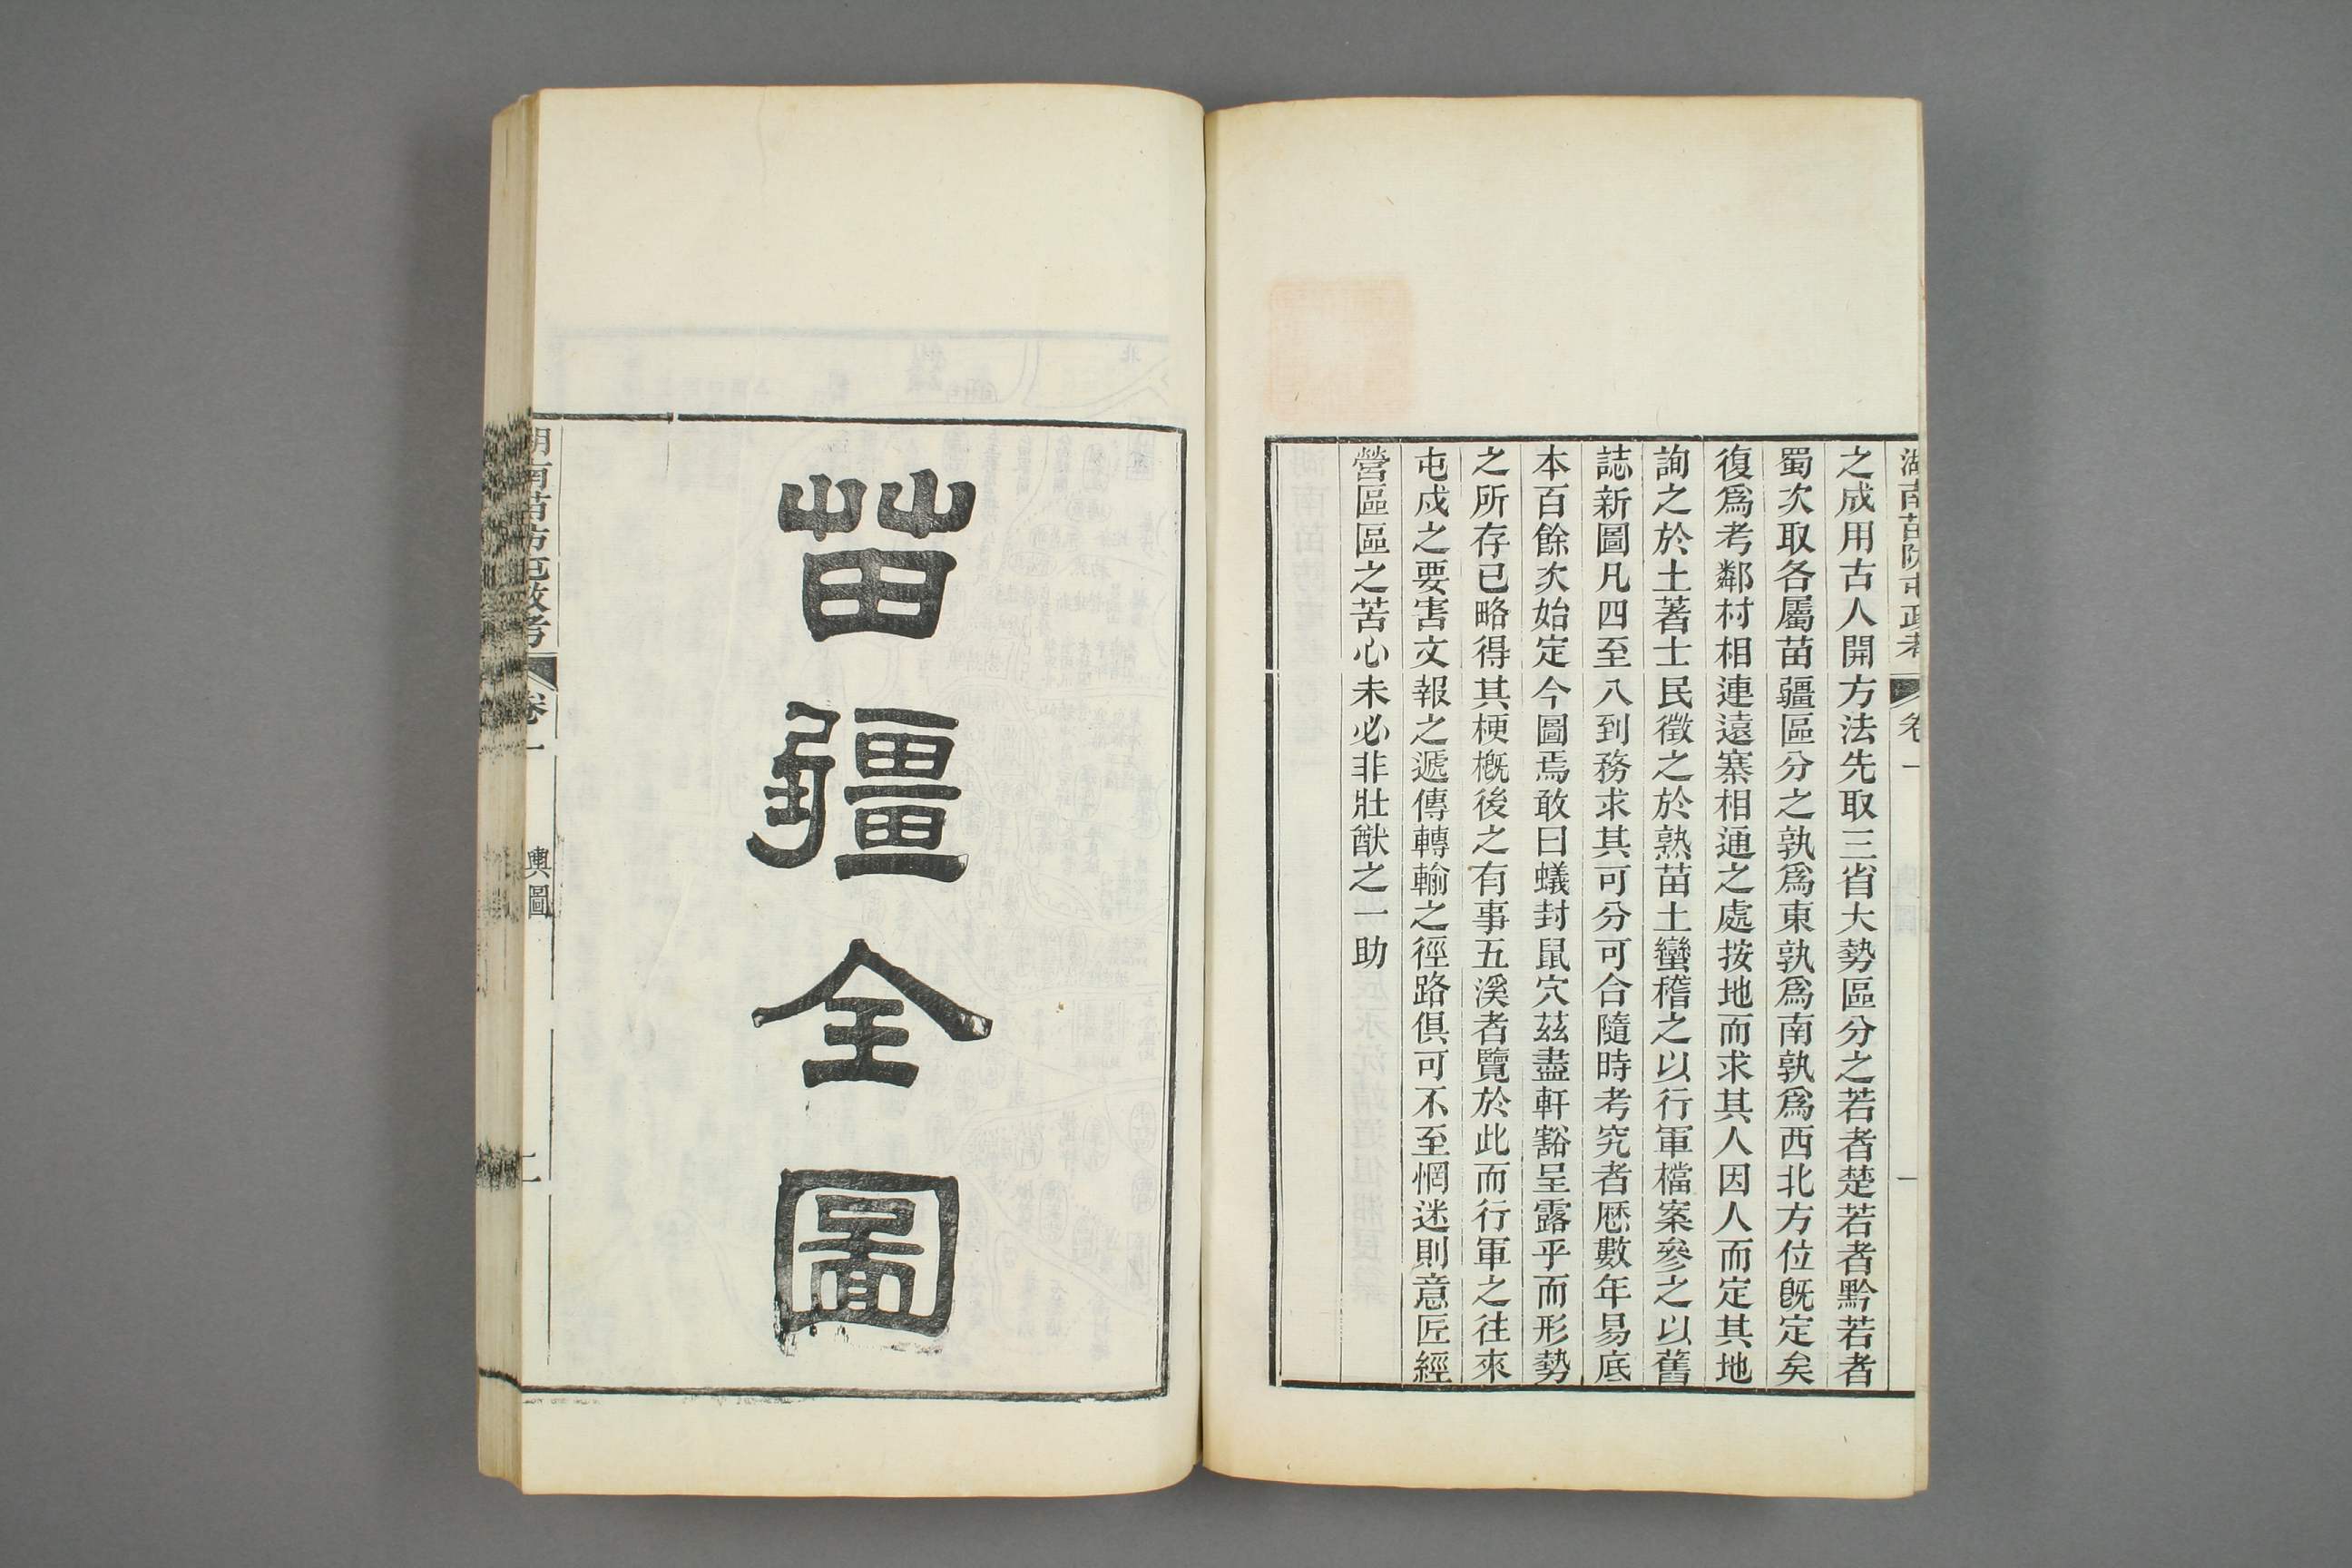 湖南苗防屯政考 卷一 一
之成用古人開方法先取三省大勢區分之若者楚若者黔若者
蜀次取各屬苗疆區分之孰爲東孰爲南孰爲西北方位旣定矣
復爲考鄰村相連遠寨相通之處按地而求其人因人而定其地
詢之於土著士民徵之於熟苗土蠻稽之以行軍檔案參之以舊
誌新圖凡四至八到務求其可分可合隨時考究者厯數年易底
本百餘次始定今圖焉敢曰蟻封鼠穴茲盡軒豁呈露乎而形勢
之所存已略得其梗概後之有事五溪者覽於此而行軍之往來
屯戍之要害文報之遞傳轉輸之徑路俱可不至惘迷則意匠經
營區區之苦心未必非壯猷之一助
苗疆全圖
湖南苗防屯政考 卷一 輿圖 二